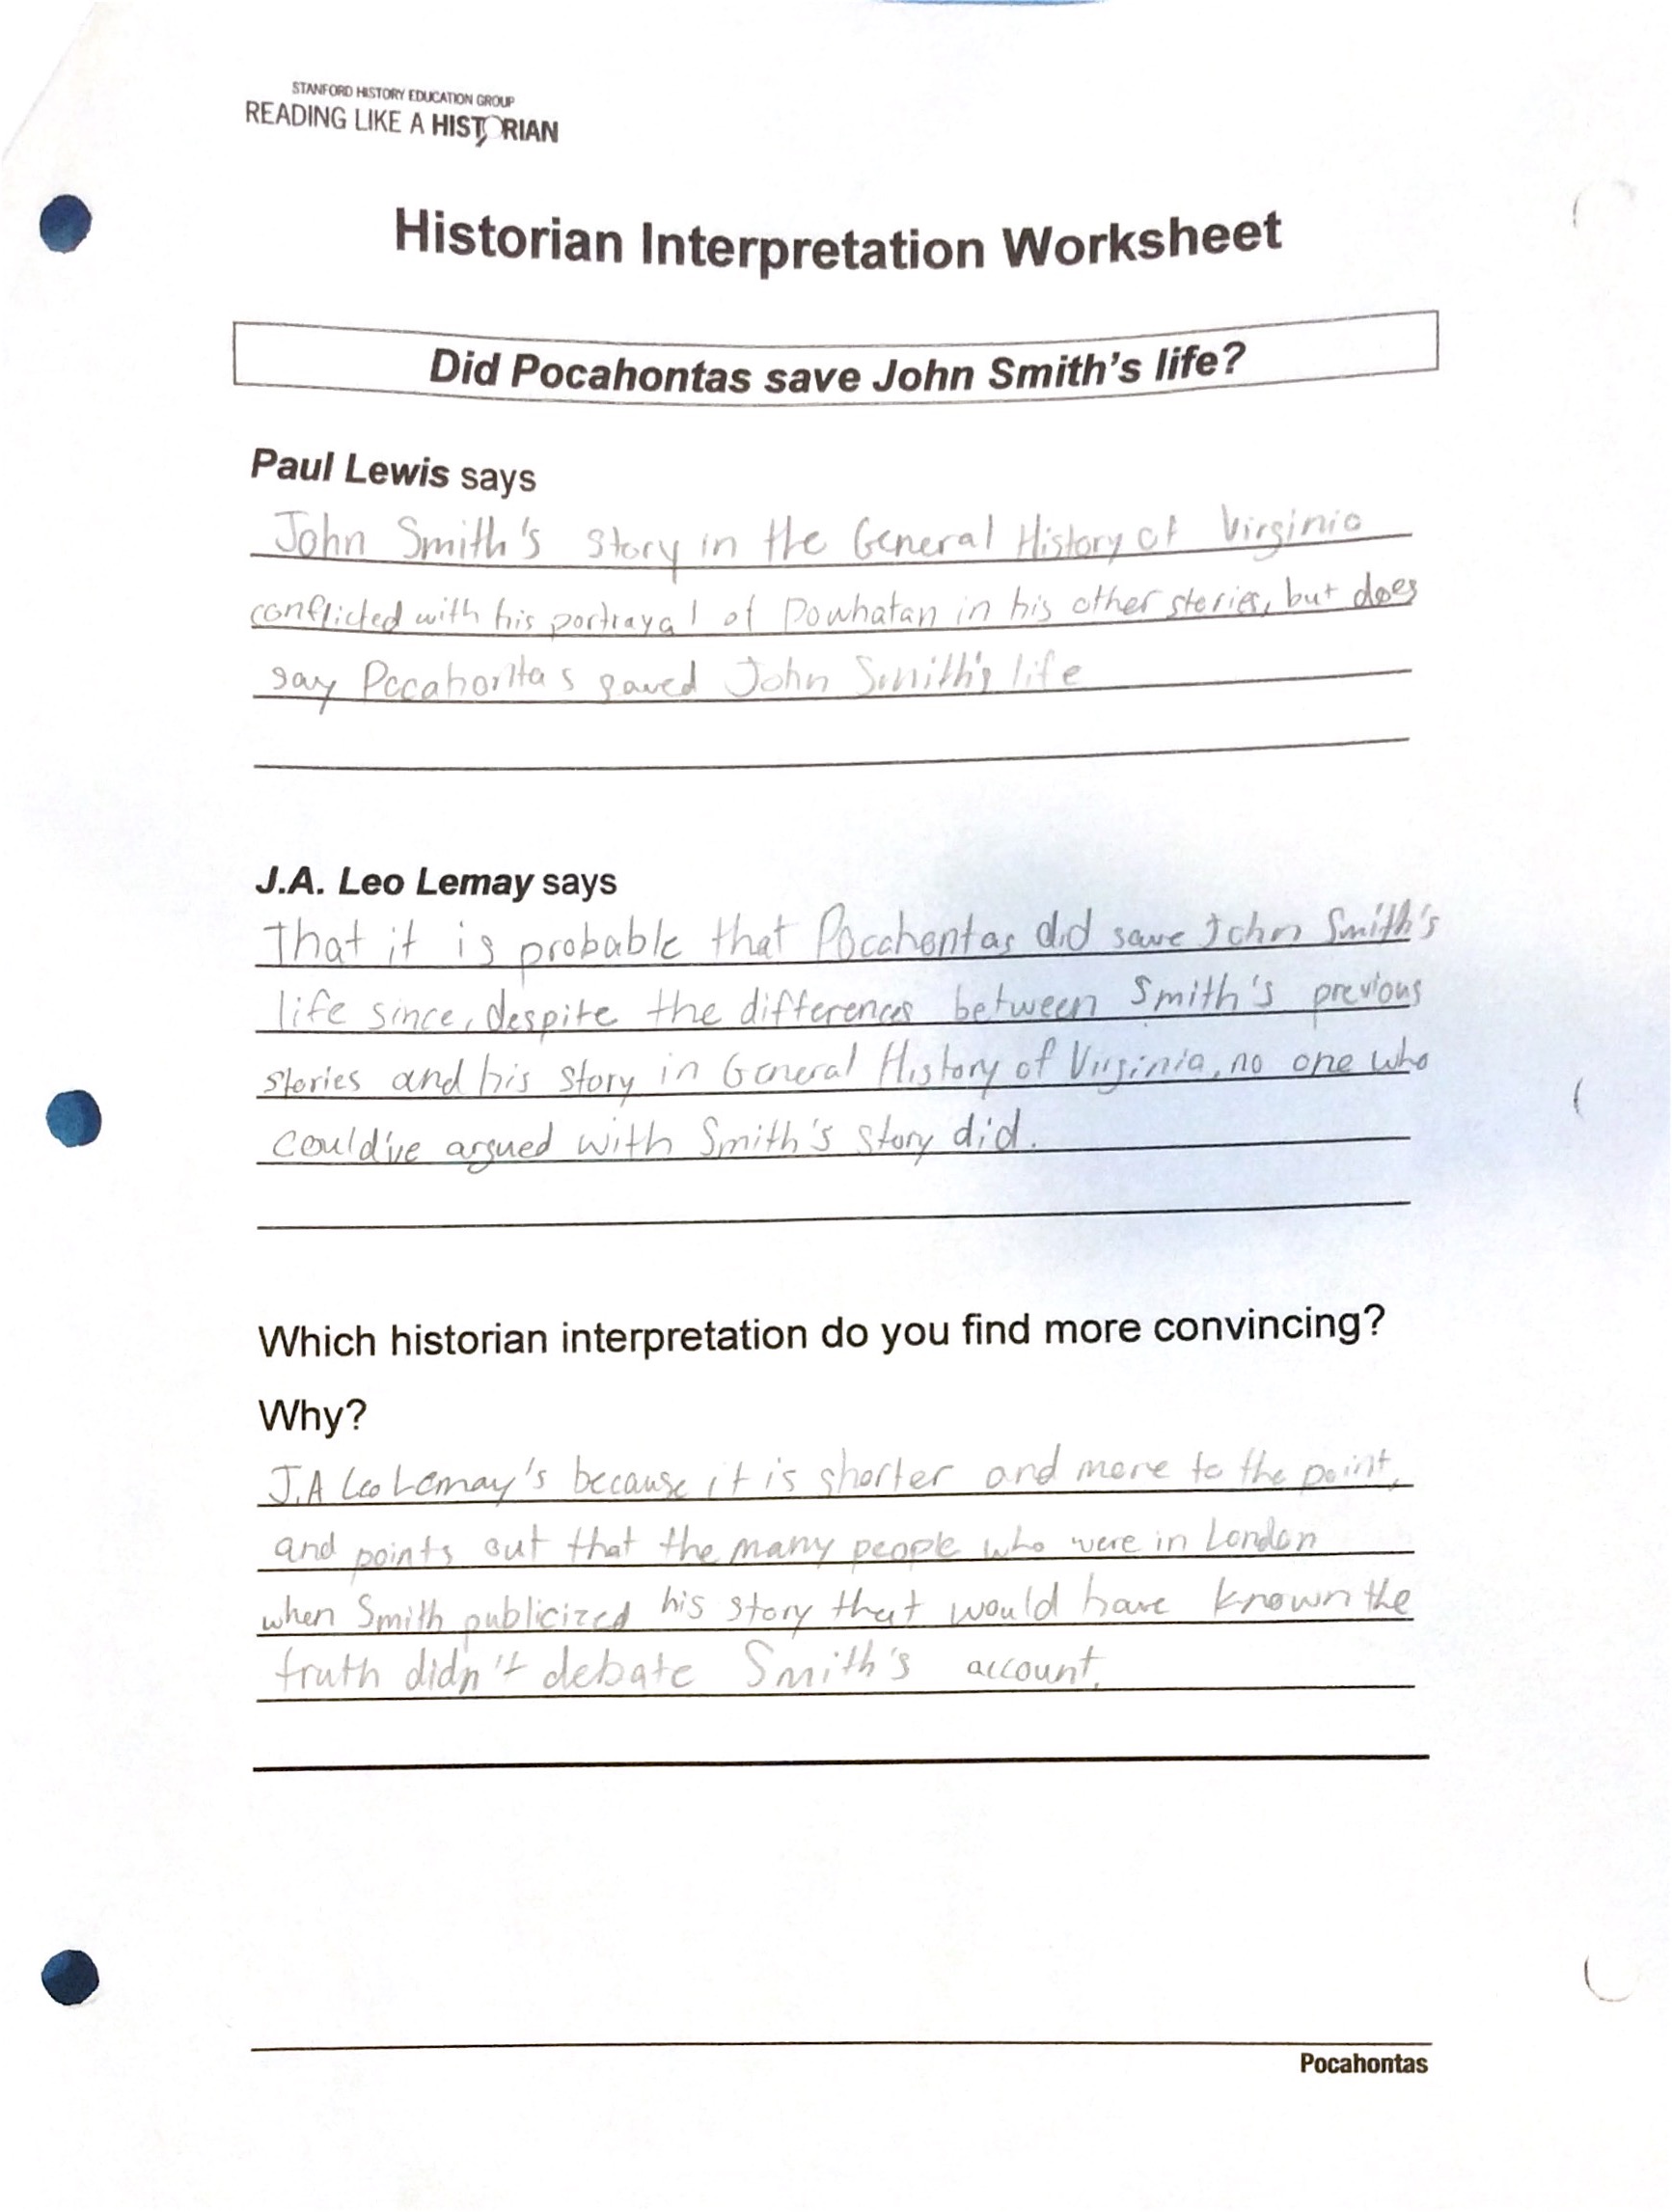 STANFORD HISTORY EDUCATION GROUP
READING LIKE A HISTORIAN
Historian Interpretation Worksheet
Did Pocahontas save John Smith's life?
Paul Lewis says
John Smith's story in the General History of Virginia
conflicted with his portrayal of Powhatan in his other stories, but does
say Pocahontas saved John Smith's life
J.A. Leo Lemay says
That it is probable that Pocahontas did save John Smith's
life since, despite the differences between Smith's previous
stories and his story in General History of Virginia, no one who
could've argued with Smith's story did.
Which historian interpretation do you find more convincing?
Why?
J.A Leo Lemay's because it is shorter and more to the point,
and points out that the many people who were in London
when Smith publicized his story that would have known the
truth didn't debate Smith's account.
Pocahontas